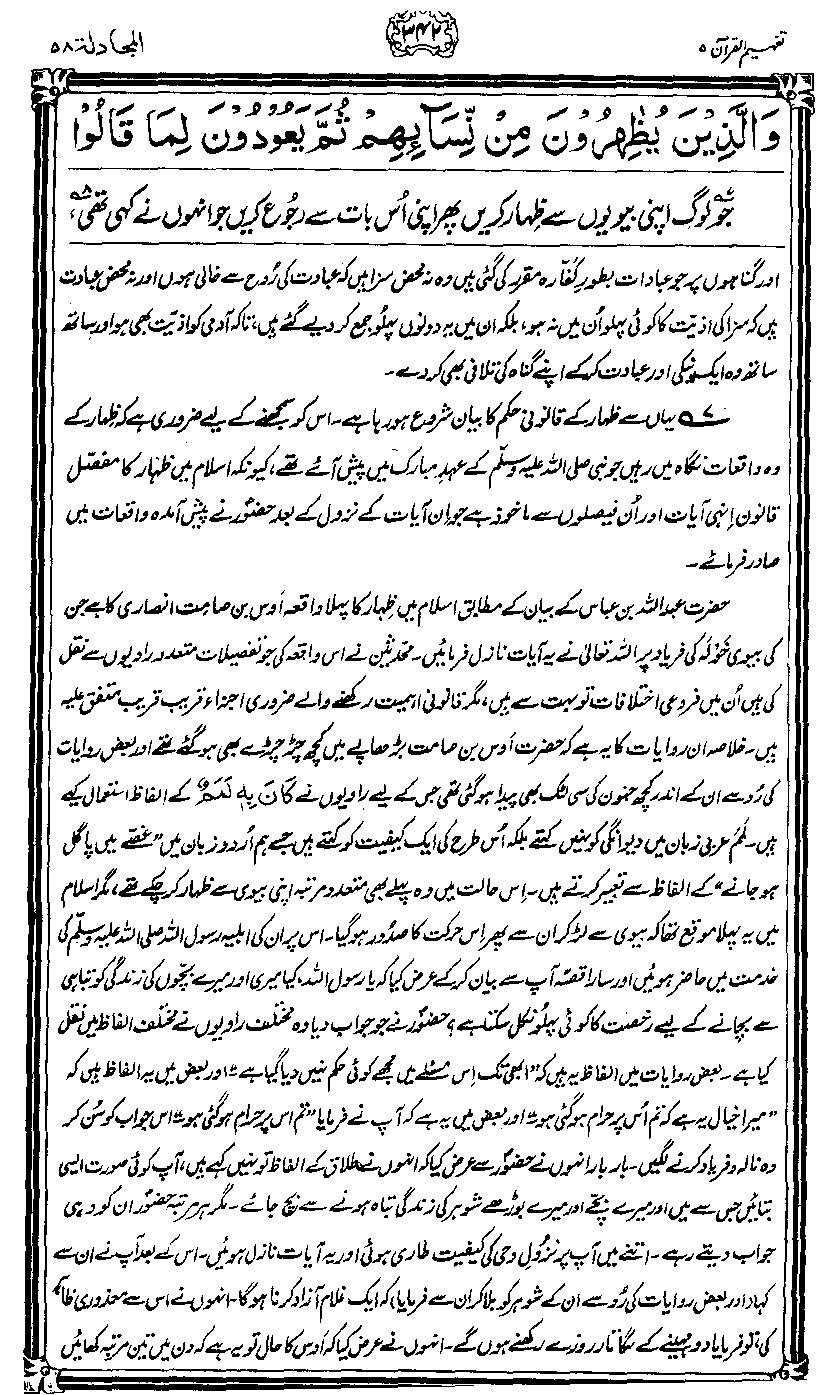 تفہیم القرآن ۵
۳۴۲
المجادلۃ ۵۸
وَالَّذِيْنَ يُظٰهِرُوْنَ مِنْ نِّسَآىِٕهِمْ ثُمَّ يَعُوْدُوْنَ لِمَا قَالُوْا
جو لوگ اپنی بیویوں سے ظِہار کریں پھر اپنی اُس بات سے رُجوع کریں جو انہوں نے کہی تھی،
اور گناہوں پر جو عبادات بطورِ کفّارہ مقرر کی گئی ہیں وہ نہ محض سزا ہیں کہ عبادت کی رُوح سے خالی ہوں اور نہ محض عبادت
ہیں کہ سزا کی اذیّت کا کوئی پہلو اُن میں نہ ہو، بلکہ ان میں یہ دونوں پہلو جمع کر دیے گئے ہیں، تاکہ آدمی کو اذیّت بھی ہو اور ساتھ
ساتھ وہ ایک نیکی اور عبادت کر کے اپنے گناہ کی تلافی بھی کر دے۔
یہاں سے ظہار کے قانونی حکم کا بیان شروع ہو رہا ہے۔ اس کو سمجھنے کے لیے ضروری ہے کہ ظِہار کے
وہ واقعات نگاہ میں رہیں جو نبی صلی اللہ علیہ وسلّم کے عہدِ مبارک میں پیش آئے تھے، کیونکہ اسلام میں ظہار کا مفصّل
قانون اِنہی آیات اور اُن فیصلوں سے ماخوذ ہے جو ان آیات کے نزول کے بعد حضورؐ نے پیش آمدہ واقعات میں
صادر فرمائے۔
حضرت عبداللہ بن عباس کے بیان کے مطابق اسلام میں ظِہار کا پہلا واقعہ اَوس بن صامت انصاری کا ہے جن
کی بیوی خَولَہ کی فریاد پر اللہ تعالیٰ نے یہ آیات نازل فرمائیں۔ محدّثین نے اس واقعہ کی جو تفصیلات متعدد راویوں سے نقل
کی ہیں اُن میں فروعی اختلافات تو بہت سے ہیں، مگر قانونی اہمیت رکھنے والے ضروری اجزاء قریب قریب متفق علیہ
ہیں۔ خلاصہ ان روایات کا یہ ہے کہ حضرت اَوس بن صامت بڑھاپے میں کچھ چڑچڑے بھی ہو گئے تھے اور بعض روایات
کی رُو سے ان کے اندر کچھ جنون کی سی لٹک بھی پیدا ہو گئی تھی جس کے لیے راویوں نے کَانَ بِہٖ لَمَمٌ کے الفاظ استعمال کیے
ہیں۔ لَمَم عربی زبان میں دیوانگی کو نہیں کہتے بلکہ اُس طرح کی ایک کیفیت کو کہتے ہیں جسے ہم اُردو زبان میں ”غصّے میں پاگل
ہو جانے“ کے الفاظ سے تعبیر کرتے ہیں۔ اِس حالت میں وہ پہلے بھی متعدد مرتبہ اپنی بیوی سے ظہار کر چکے تھے، مگر اسلام
میں یہ پہلا موقع تھا کہ بیوی سے لڑ کر ان سے پھر اِس حرکت کا صدُور ہو گیا۔ اس پر ان کی اہلیہ رسول اللہ صلی اللہ علیہ وسلّم کی
خدمت میں حاضر ہوئیں اور سارا قصّہ آپ سے بیان کر کے عرض کیا کہ یا رسول اللہ، کیا میری اور میرے بچّوں کی زندگی کو تباہی
سے بچانے کے لیے رُخصت کا کوئی پہلو نکل سکتا ہے؟ حضورؐ نے جو جواب دیا وہ مختلف راویوں نے مختلف الفاظ میں نقل
کیا ہے۔ بعض روایات میں الفاظ یہ ہیں کہ ”ابھی تک اِس مسئلے میں مجھے کوئی حکم نہیں دیا گیا ہے“ اور بعض میں یہ الفاظ ہیں کہ
”میرا خیال یہ ہے کہ تم اُس پر حرام ہو گئی ہو“ اور بعض میں یہ ہے کہ آپ نے فرمایا ”تم اس پر حرام ہو گئی ہو“ اس جواب کو سُن کر
وہ نالہ و فریاد کرنے لگیں۔ بار بار انہوں نے حضورؐ سے عرض کیا کہ انہوں نے طلاق کے الفاظ تو نہیں کہے ہیں، آپ کوئی صورت ایسی
بتائیں جس سے میں اور میرے بچّے اور میرے بوڑھے شوہر کی زندگی تباہ ہونے سے بچ جائے۔ مگر ہر مرتبہ حضورؐ ان کو وہی
جواب دیتے رہے۔ اتنے میں آپ پر نزُول وحی کی کیفیت طاری ہوئی اور یہ آیات نازل ہوئیں۔ اس کے بعد آپ نے ان سے
کہا (اور بعض روایات کی رُو سے ان کے شوہر کو بلا کر ان سے فرمایا) کہ ایک غلام آزاد کرنا ہو گا۔ انہوں نے اس سے معذوری ظاہر
کی تو فرمایا دو مہینے کے لگاتار روزے رکھنے ہوں گے۔ انہوں نے عرض کیا کہ اَوس کا حال تو یہ ہے کہ دن میں تین مرتبہ کھائیں